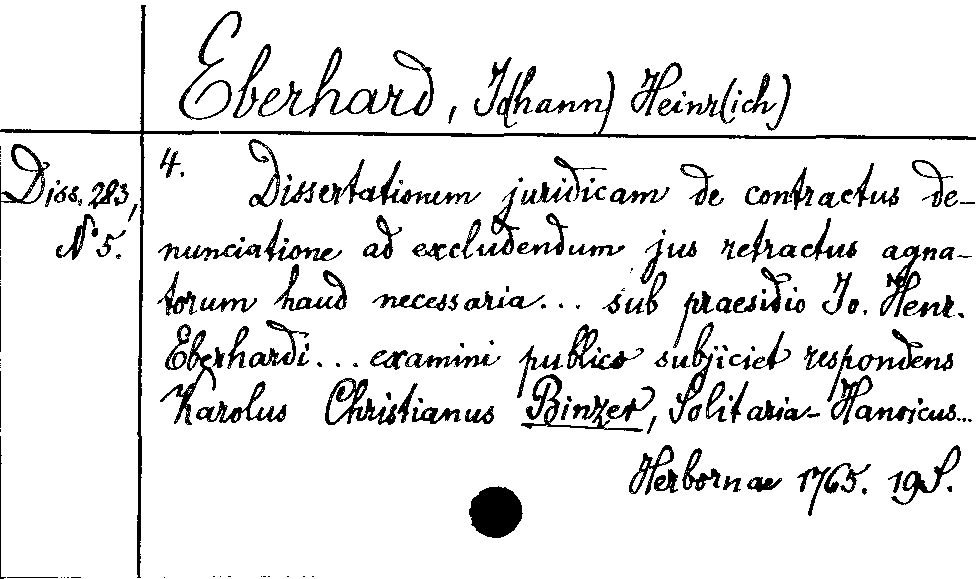 Eberhard, Jo(hann) Heinr(ich)
Diss. 283,
No 5.
4. Dissertationem juridicam de contractus de-
nunciatione ad excludendum jus retractus agna-
torum haud necessaria... sub praesidio Jo. Henr.
Eberhardi... examini publico subjiciet respondens
Karolus Christianus Binzer, Solitaria-Hanoicus...
Herbornae 1765. 19 S.